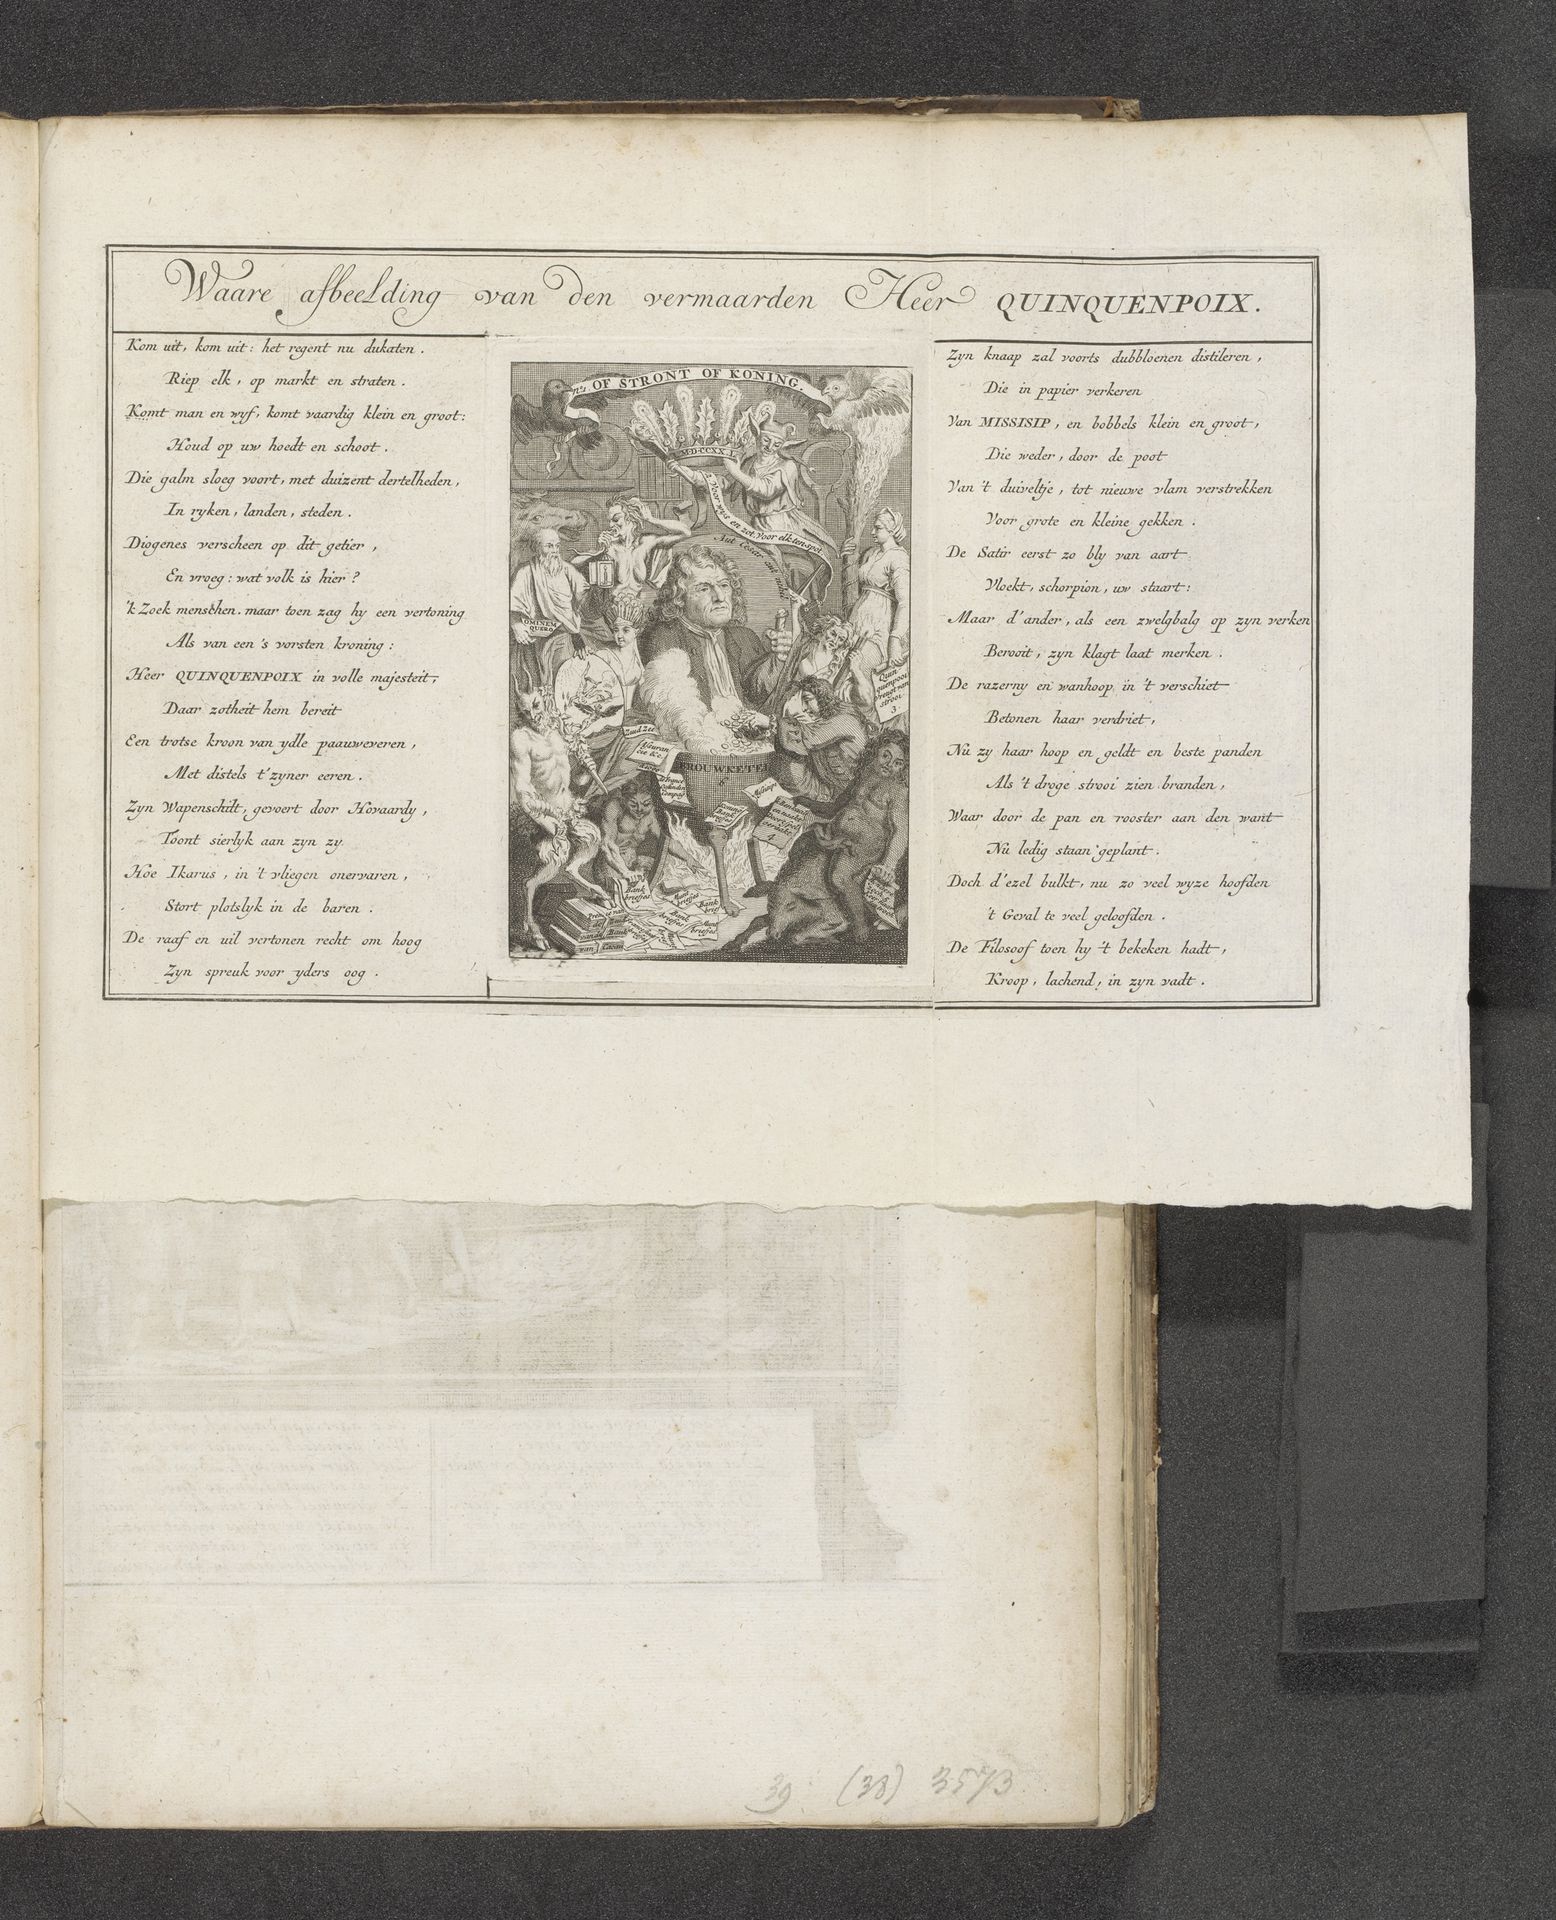 Waare afbeelding van den vermaarden Heer QUINQUENPOIX.
Kom uit, kom uit: het regent nu dukaten.
Riep elk, op markt en straten.
Komt man en wyf, komt vaardig klein en groot:
Houd op uw hoedt en schoot.
Die galm sloeg voort, met duizent dertelheden,
In ryken, landen, steden.
Diogenes verscheen op dit getier,
En vroeg: wat volk is hier?
'k Zoek menschen. maar toen zag hy een vertoning
Als van een 's vorsten kroning:
Heer QUINQUENPOIX in volle majesteit,
Daar zotheit hem bereit
Een trotse kroon van ydle paauweveren,
Met distels t'zyner eeren.
Zyn Wapenschilt, gevoert door Hovaardy,
Toont sierlyk aan zyn zy
Hoe Ikarus, in 't vliegen onervaren,
Stort plotslyk in de baren.
De raaf en uil vertonen recht om hoog
Zyn spreuk voor yders oog.
OF STRONT OF KONING.
MDCCXX.
2. Voor wys en zot, voor elk ten spot.
Aut Cesar aut nihil
OMINEM
QUERO
Quin
quenpoox
vreugt van
strooi
3.
Zuid Zee
BROUWKETEL
6
4.
Bank
briefjes
Bank
brief
Zyn knaap zal voorts dubbloenen distileren,
Die in papier verkeren
Van MISSISIP, en bobbels klein en groot,
Die weder, door de poot
Van 't duiveltje, tot nieuwe vlam verstrekken
Voor grote en kleine gekken.
De Satir eerst zo bly van aart
Vloekt, schorpion, uw staart:
Maar d'ander, als een zwelgbalg op zyn verken
Berooit, zyn klagt laat merken.
De razerny en wanhoop in 't verschiet
Betonen haar verdriet,
Nu zy haar hoop en geldt en beste panden
Als 't droge strooi zien branden,
Waar door de pan en rooster aan den want
Nu ledig staan geplant.
Doch d'ezel bulkt, nu zo veel wyze hoofden
't Geval te veel geloofden.
De Filosoof toen hy 't bekeken hadt,
Kroop, lachend, in zyn vadt.
39 (38) 3573